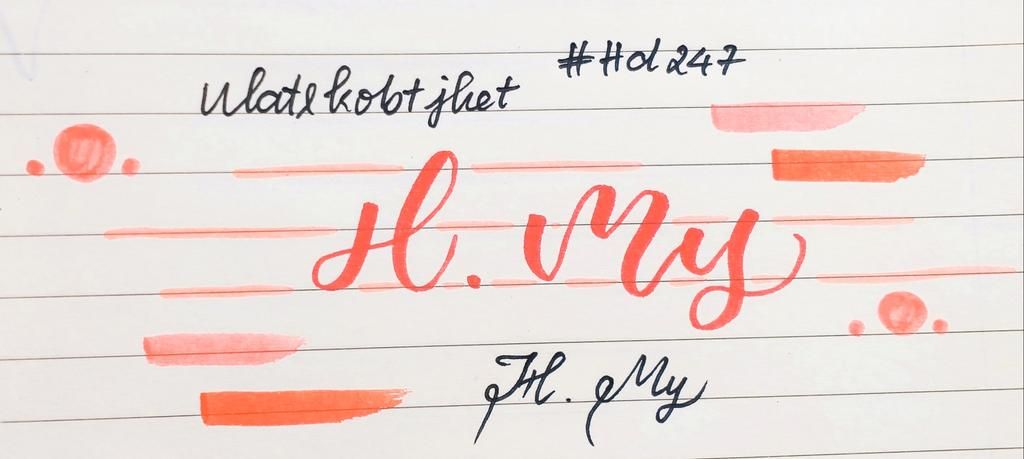 #Hd247
Ulatekobtjhet
H. My
H. My